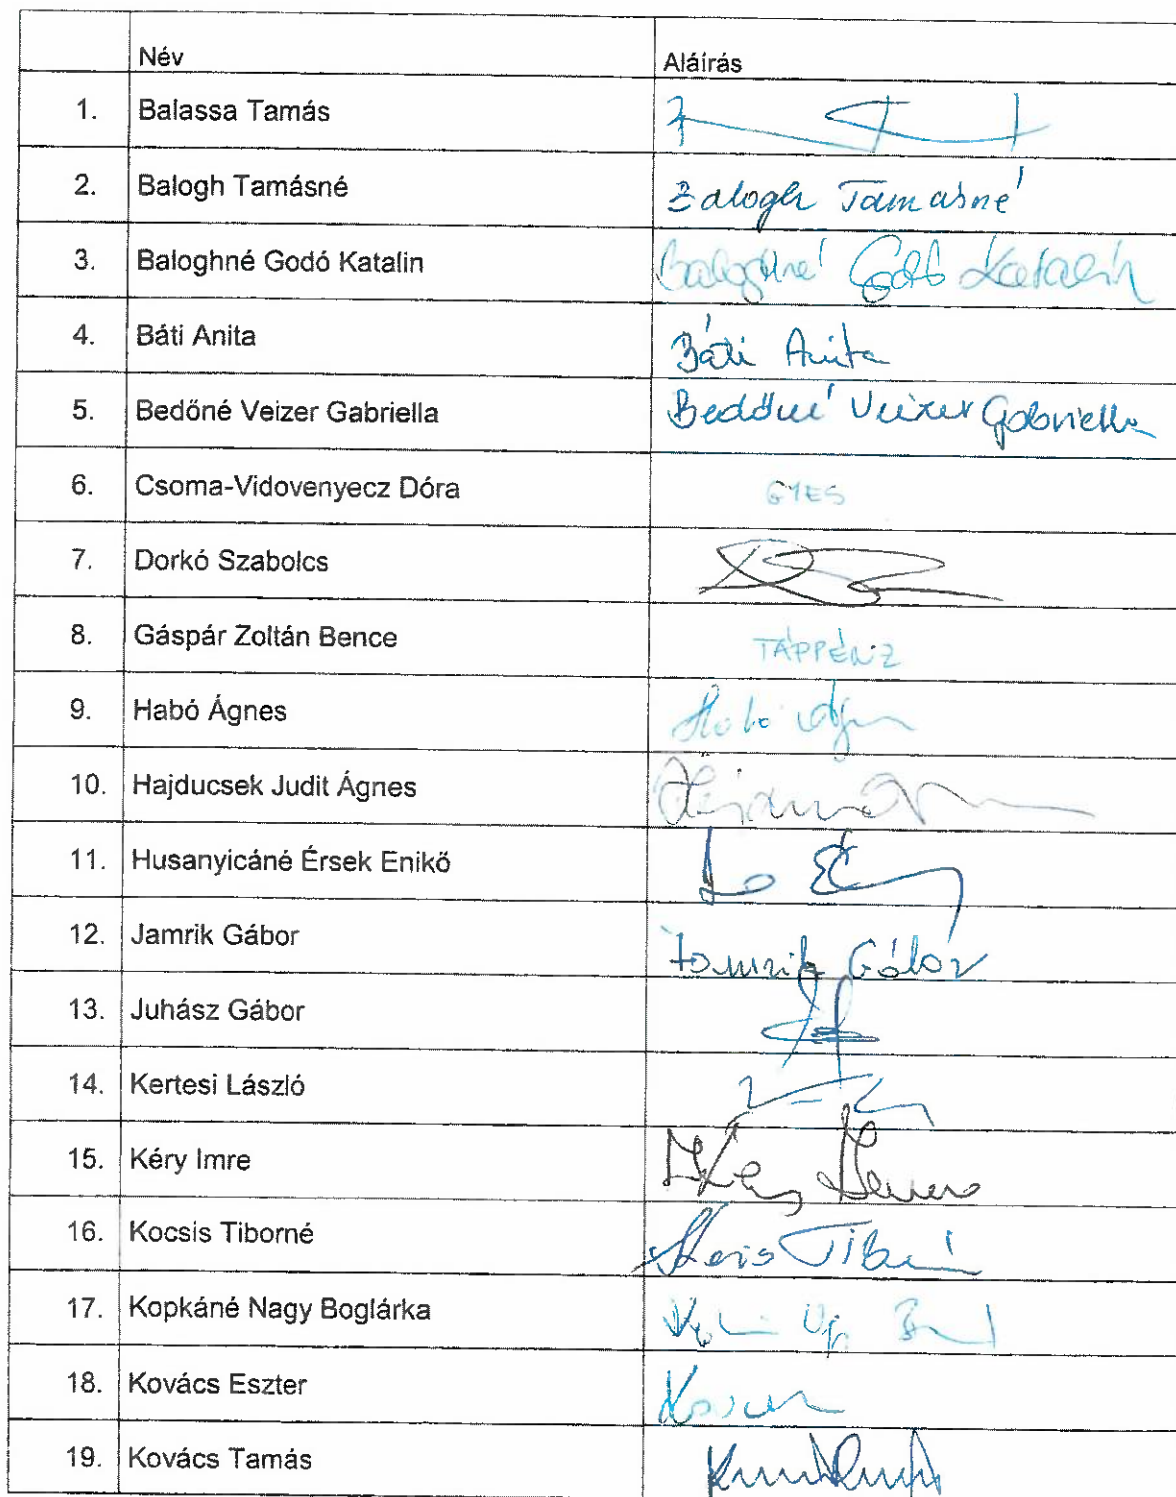 Név Aláírás
1. Balassa Tamás
2. Balogh Tamásné Balogh Tamásné
3. Baloghné Godó Katalin Baloghné Godó Katalin
4. Báti Anita Báti Anita
5. Bedőné Veizer Gabriella Bedőné Veizer Gabriella
6. Csoma-Vidovenyecz Dóra GYES
7. Dorkó Szabolcs
8. Gáspár Zoltán Bence TÁPPÉNZ
9. Habó Ágnes Habó Ágn
10. Hajducsek Judit Ágnes
11. Husanyicáné Érsek Enikő
12. Jamrik Gábor Jamrik Gábor
13. Juhász Gábor
14. Kertesi László
15. Kéry Imre
16. Kocsis Tiborné
17. Kopkáné Nagy Boglárka
18. Kovács Eszter
19. Kovács Tamás